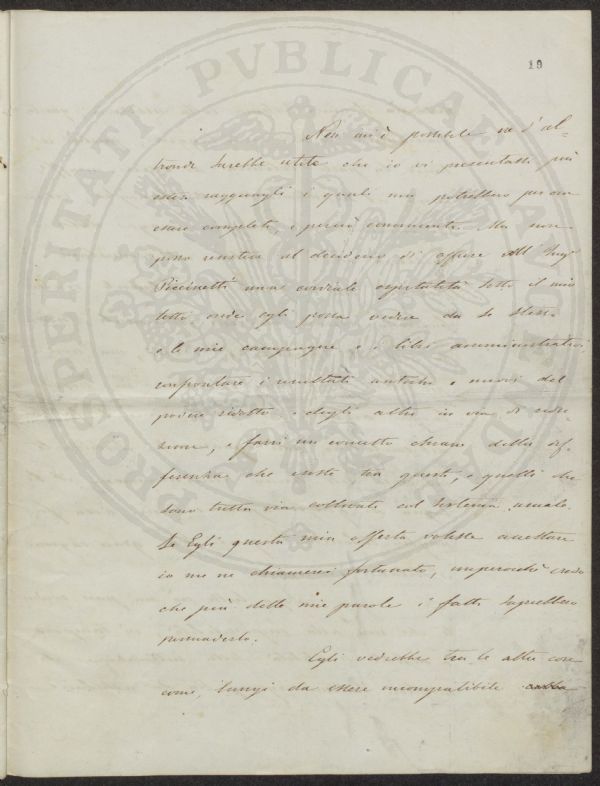 19
Non mi è possibile nè d'al-
tronde sarebbe utile che io vi presentassi più
estesi ragguagli i quali non potrebbero per ora
essere completi, e perciò convincenti. Ma non
posso resistere al desiderio di offrire All' Ing.
Piccinetti una cordiale ospitalità sotto il mio
tetto onde egli possa vedere da se stesso
e le mie campagne e i libri amministrativi
confrontare i resultati antichi e nuovi del
podere ridotto e degli altri in via di ridu-
zione, e farsi un concetto chiaro della dif-
ferenza che esiste tra questi, e quelli che
sono tutta via coltivati col sistema usuale.
Se Egli questa mia offerta volesse accettare
io me ne chiamerei fortunato, imperocchè credo
che più delle mie parole i fatti saprebbero
persuaderlo.
Egli vedrebbe tra le altre cose
come, lungi da essere incompatibile
PROSPERITATI PVBLICAE AVGENDAE